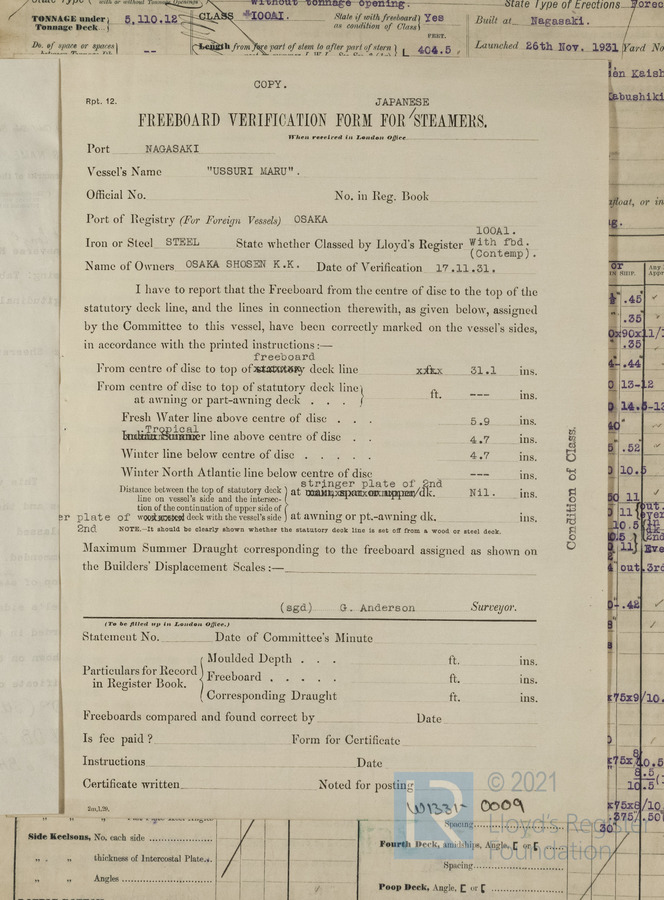 without tonnage opening.
TONNAGE under Tonnage Deck 5,110.12
CLASS *100A1.
State if with freeboard as condition of Class Yes
State Type of Erections
Built at Nagasaki.
Do. of space or spaces --
Length from fore part of stem to after part of stern L 404.5
FEET.
Launched 26th Nov. 1931 Yard No
COPY.
Rpt. 12.
JAPANESE
FREEBOARD VERIFICATION FORM FOR STEAMERS.
When received in London Office
Port NAGASAKI
Vessel's Name "USSURI MARU".
Official No. No. in Reg. Book
Port of Registry (For Foreign Vessels) OSAKA
100A1.
Iron or Steel STEEL State whether Classed by Lloyd's Register With fbd.
(Contemp).
Name of Owners OSAKA SHOSEN K.K. Date of Verification 17.11.31.
I have to report that the Freeboard from the centre of disc to the top of the
statutory deck line, and the lines in connection therewith, as given below, assigned
by the Committee to this vessel, have been correctly marked on the vessel's sides,
in accordance with the printed instructions:—
freeboard
From centre of disc to top of statutory deck line 31.1 ins.
From centre of disc to top of statutory deck line
at awning or part-awning deck . . . ft. --- ins.
Fresh Water line above centre of disc . . . 5.9 ins.
Tropical
Indian Summer line above centre of disc . . 4.7 ins.
Winter line below centre of disc . . . . . 4.7 ins.
Winter North Atlantic line below centre of disc --- ins.
stringer plate of 2nd
Distance between the top of statutory deck
line on vessel's side and the intersec-
at main, spar or upper/dk. Nil. ins.
tion of the continuation of upper side of
er plate of deck with the vessel's side at awning or pt.-awning dk. ins.
2nd
NOTE.—It should be clearly shown whether the statutory deck line is set off from a wood or steel deck.
Maximum Summer Draught corresponding to the freeboard assigned as shown on
the Builders' Displacement Scales:—
(sgd) G. Anderson Surveyor.
(To be filled up in London Office.)
Statement No. Date of Committee's Minute
Particulars for Record in Register Book.
Moulded Depth . . . ft. ins.
Freeboard . . . . . ft. ins.
Corresponding Draught ft. ins.
Freeboards compared and found correct by Date
Is fee paid? Form for Certificate
Instructions Date
Certificate written Noted for posting
2m,1.29.
Condition of Class.
W1331- 0009
© 2021
Lloyd's Register
Foundation
Side Keelsons, No. each side
" " thickness of Intercostal Plates.
" " Angles
Spacing
Fourth Deck, amidships, Angle, [ or [
Spacing
Poop Deck, Angle, [ or [